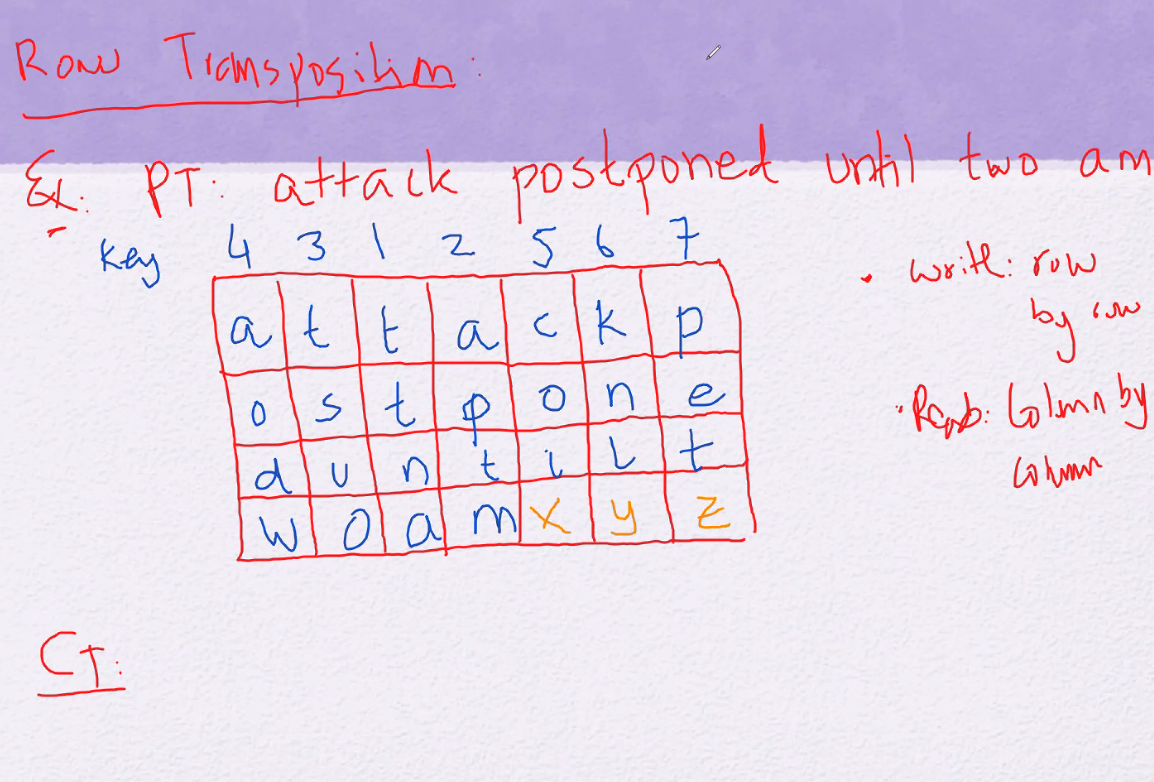 Row Transposition:
Ex. PT: attack postponed until two am
key 4 3 1 2 5 6 7
a t t a c k p
o s t p o n e
d u n t i l t
w o a m x y z
• write: row
by row
• Read: Column by
column
CT: